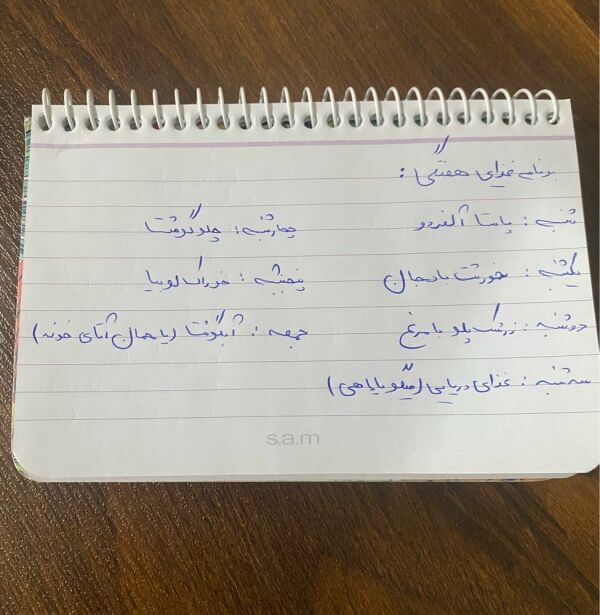 برنامه غذای هفتگی :
شنبه : پاستا آلفردو
یکشنبه : خورشت بادمجان
دوشنبه : زرشک پلو با مرغ
سه شنبه : غذای دریایی (میگو یا ماهی)
چهارشنبه : چلو گوشت
پنجشنبه : خوراک لوبیا
جمعه : آبگوشت (یا همان آقای خونه)
s.a.m